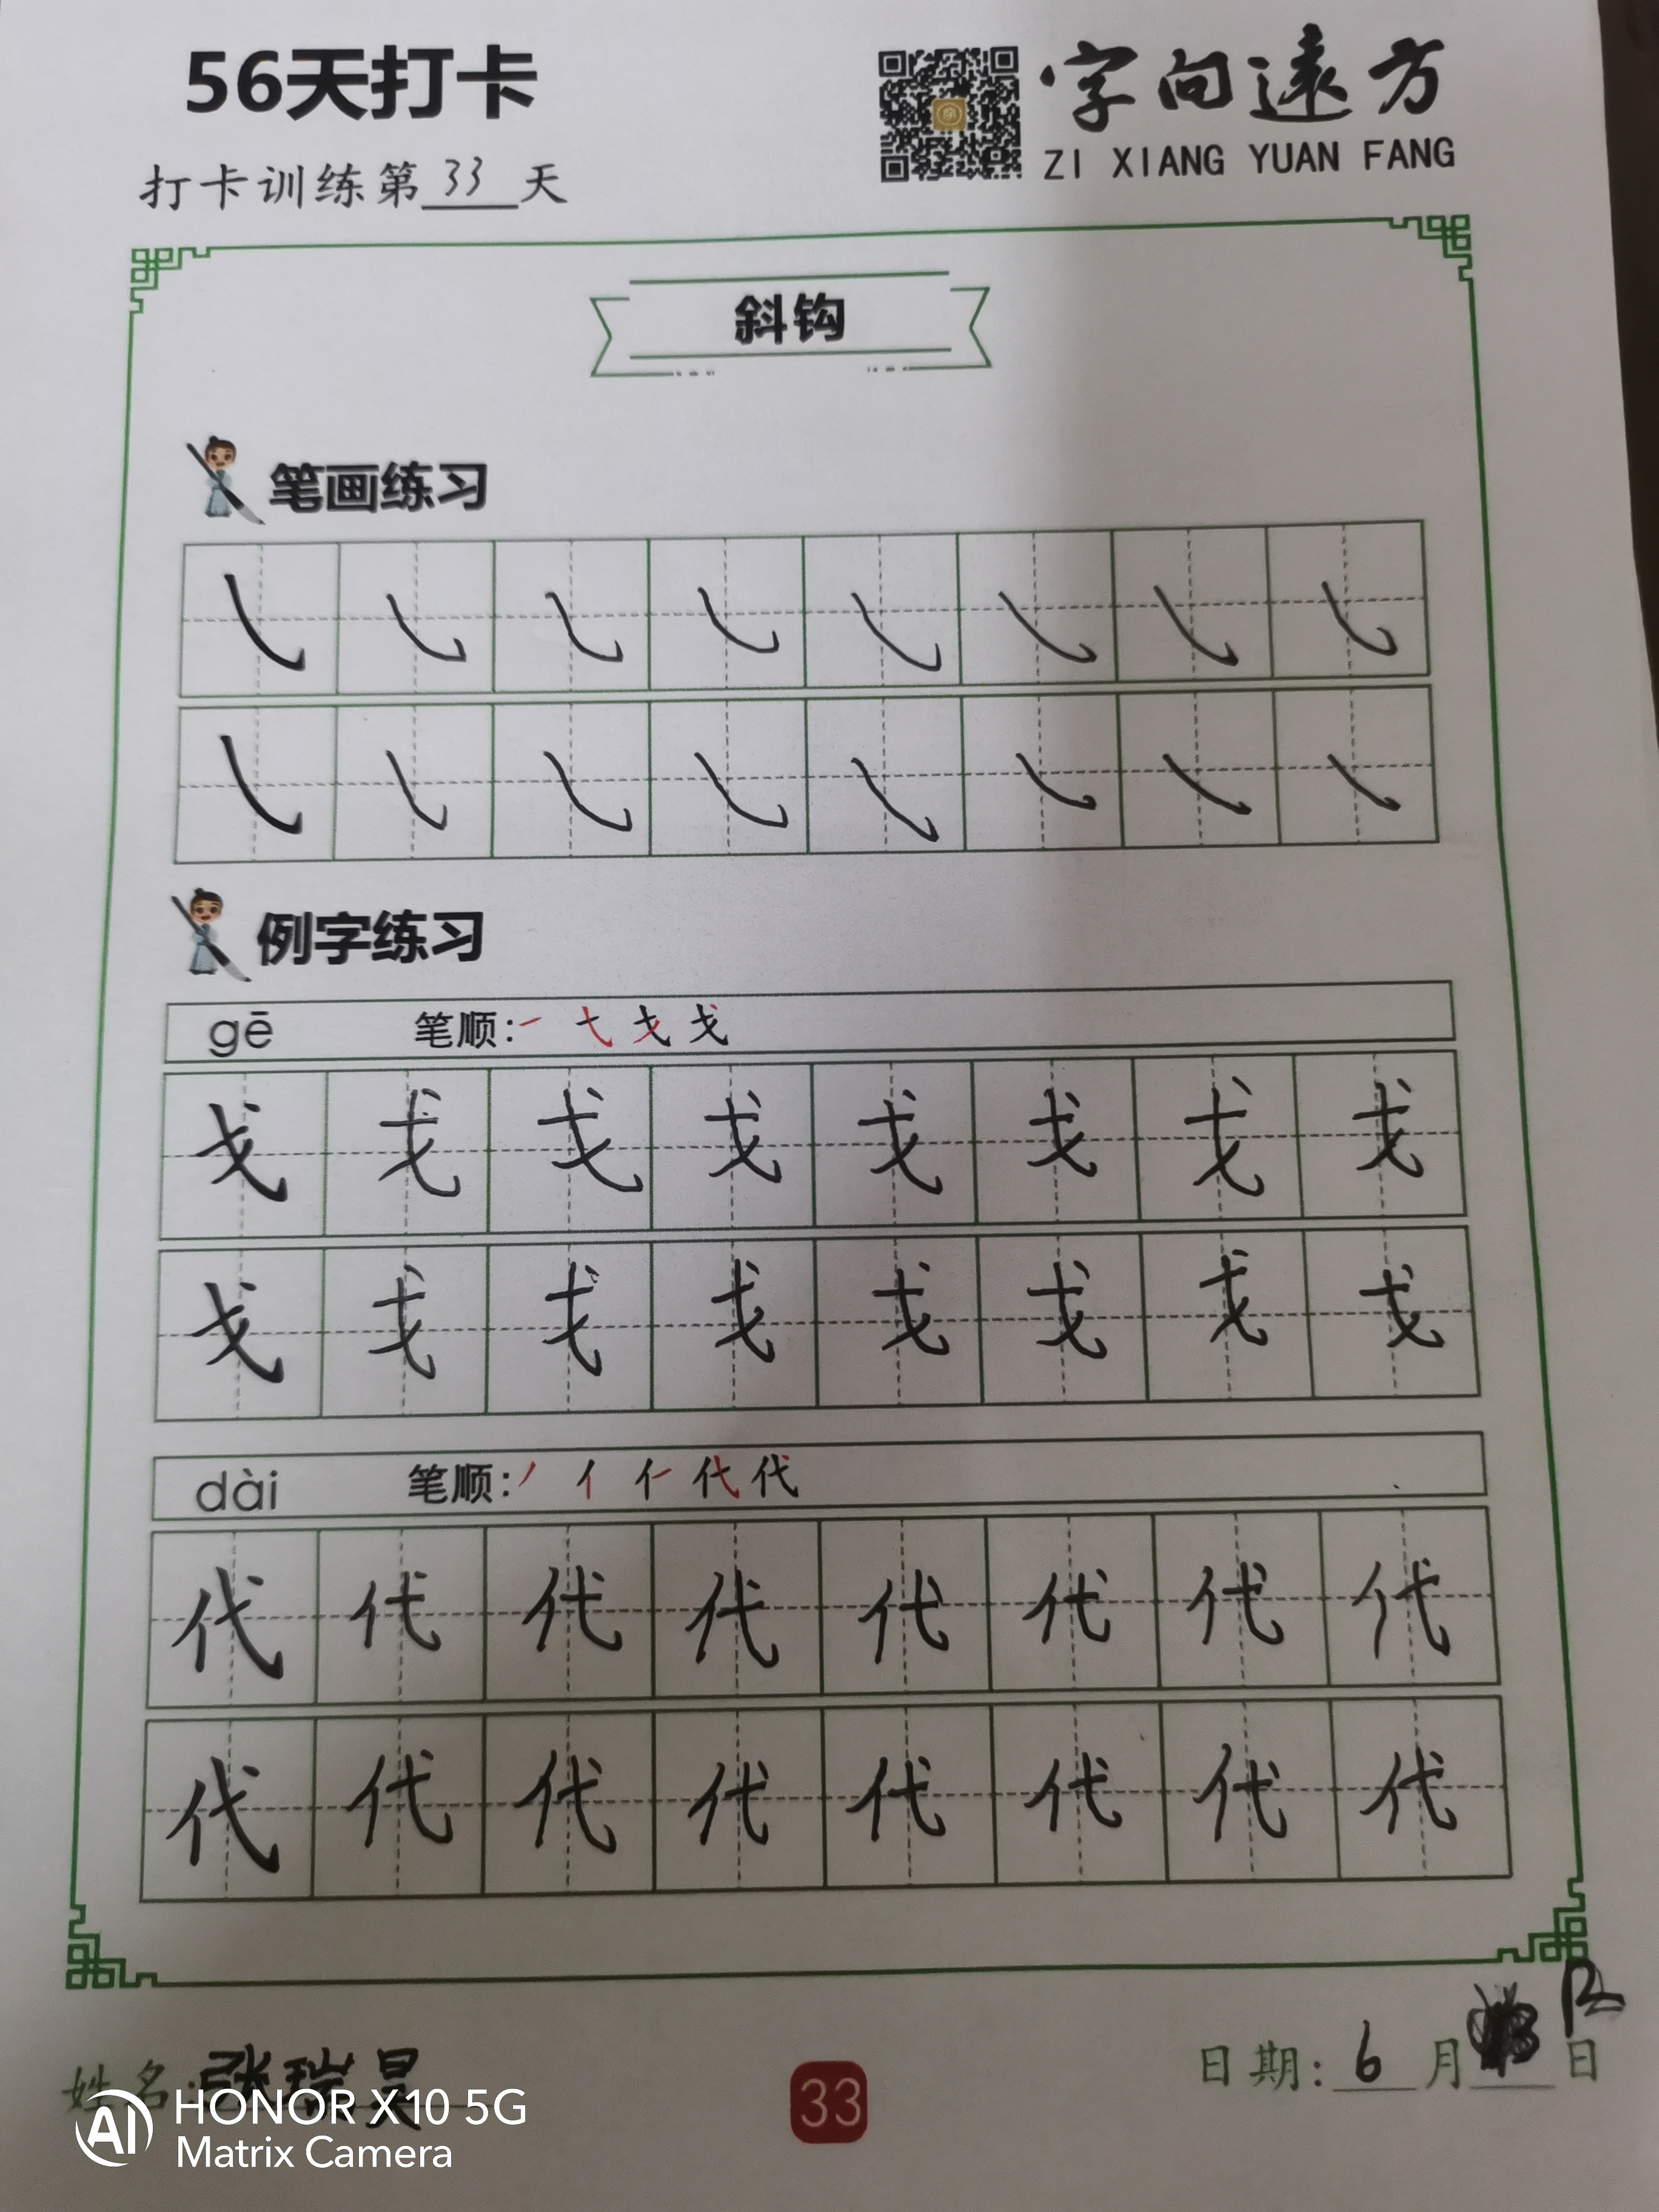 56天打卡
字向遠方
ZI XIANG YUAN FANG
打卡训练第33天
斜钩
笔画练习
例字练习
gē 笔顺：一 弋 戈 戈
戈 戈 戈 戈 戈 戈 戈 戈
戈 戈 戈 戈 戈 戈 戈 戈
dài 笔顺：丿 亻 仁 代 代
代 代 代 代 代 代 代 代
代 代 代 代 代 代 代 代
姓名：张瑞昊
33
日期：6月12日
AI HONOR X10 5G
Matrix Camera